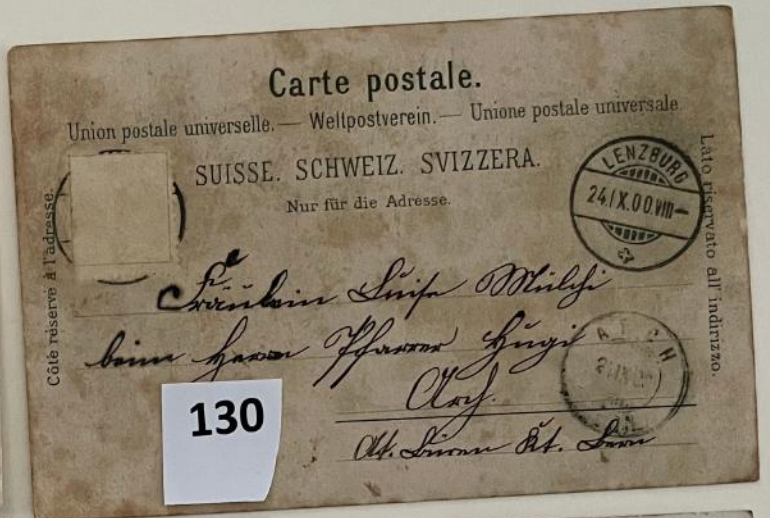 Carte postale.
Union postale universelle. — Weltpostverein. — Unione postale universale.
SUISSE. SCHWEIZ. SVIZZERA.
Nur für die Adresse.
Côté réservé à l'adresse.
Lato riservato all' indirizzo.
LENZBURG
24.IX.00.VIII—
Fräulein Luise Mülchi
beim Herrn Pfarrer Hugi
Arch.
At. Büren Kt. Bern
ARCH
130